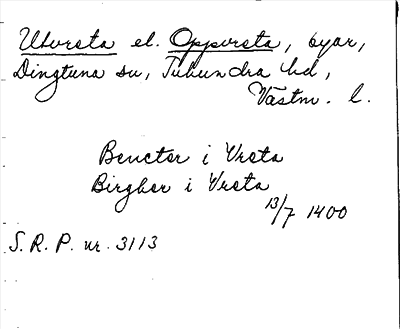 Utvreta el. Oppvreta, byar,
Dingtuna sn, Tuhundra hd,
Västm. l.
Benctor i Vreta
Birgher i Vreta
13/7 1400
S. R. P. nr. 3113